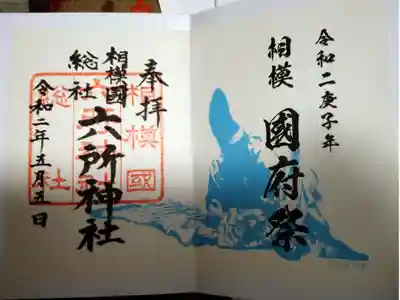 令和二庚子年
相模
國府祭
奉拝
相模國
総社
六所神社
令和二年五月五日
相模國
総社